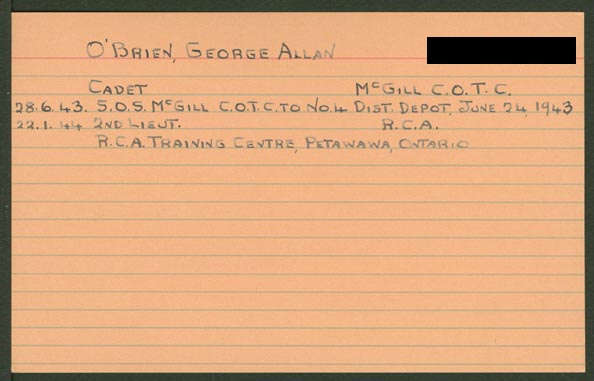 O'BRIEN, GEORGE ALLAN
CADET McGILL C.O.T.C.
28.6.43. S.O.S. McGILL C.O.T.C. TO No.4 DIST. DEPOT, JUNE 24, 1943
22.1.44 2ND LIEUT. R.C.A.
R.C.A. TRAINING CENTRE, PETAWAWA, ONTARIO